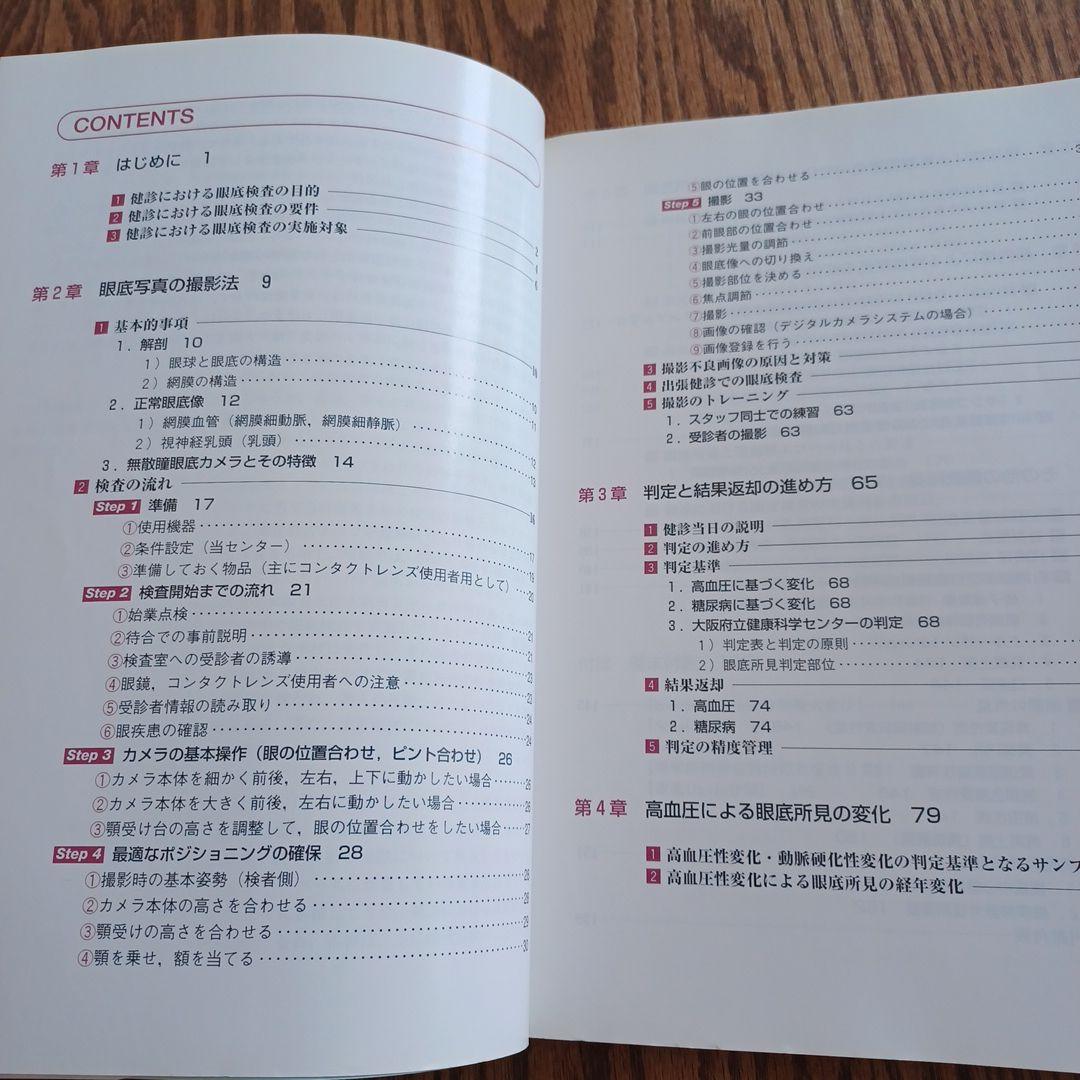 CONTENTS
第1章 はじめに 1
1 健診における眼底検査の目的
2 健診における眼底検査の要件 2
3 健診における眼底検査の実施対象 4
6
第2章 眼底写真の撮影法 9
1 基本的事項
1. 解剖 10
1）眼球と眼底の構造 10
2）網膜の構造
2. 正常眼底像 12
1）網膜血管（網膜細動脈，網膜細静脈） 11
2）視神経乳頭（乳頭） 12
3. 無散瞳眼底カメラとその特徴 14
13
2 検査の流れ
Step 1 準備 17
16
①使用機器
②条件設定（当センター） 17
③準備しておく物品（主にコンタクトレンズ使用者用として） 19
20
Step 2 検査開始までの流れ 21
①始業点検
②待合での事前説明 21
③検査室への受診者の誘導 21
④眼鏡，コンタクトレンズ使用者への注意 23
⑤受診者情報の読み取り 23
⑥眼疾患の確認 24
24
Step 3 カメラの基本操作（眼の位置合わせ，ピント合わせ） 26
①カメラ本体を細かく前後，左右，上下に動かしたい場合 26
②カメラ本体を大きく前後，左右に動かしたい場合 26
③顎受け台の高さを調整して，眼の位置合わせをしたい場合 27
Step 4 最適なポジショニングの確保 28
①撮影時の基本姿勢（検者側） 28
②カメラ本体の高さを合わせる 28
③顎受けの高さを合わせる 29
④顎を乗せ，額を当てる 30
⑤眼の位置を合わせる
Step 5 撮影 33
①左右の眼の位置合わせ
②前眼部の位置合わせ
③撮影光量の調節
④眼底像への切り換え
⑤撮影部位を決める
⑥焦点調節
⑦撮影
⑧画像の確認（デジタルカメラシステムの場合）
⑨画像登録を行う
3 撮影不良画像の原因と対策
4 出張健診での眼底検査
5 撮影のトレーニング
1. スタッフ同士での練習 63
2. 受診者の撮影 63
第3章 判定と結果返却の進め方 65
1 健診当日の説明
2 判定の進め方
3 判定基準
1. 高血圧に基づく変化 68
2. 糖尿病に基づく変化 68
3. 大阪府立健康科学センターの判定 68
1）判定表と判定の原則
2）眼底所見判定部位
4 結果返却
1. 高血圧 74
2. 糖尿病 74
5 判定の精度管理
第4章 高血圧による眼底所見の変化 79
1 高血圧性変化・動脈硬化性変化の判定基準となるサンプ
2 高血圧性変化による眼底所見の経年変化